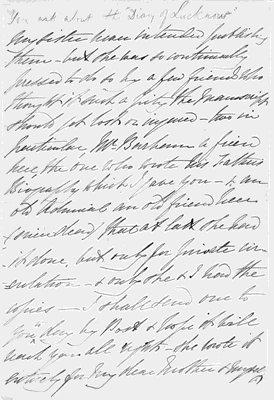 You ask about the "Diary of Lucknow"
My Sister never intended publishing
them - but she was so continually
pressed to do so by a few friends who
thought it such a pity the Manuscript
should be lost or injured - two in
particular Mr Barham a friend
here, the one who wrote his Father's
Biography which I gave you - & an
old Admiral an old friend here
(since dead) that at last she had
it done, but only for private cir-
-culation - & only she & I had the
copies - I shall send one to
you by Post & hope it will
reach you all right - She wrote it
entirely for my dear Mother & myself